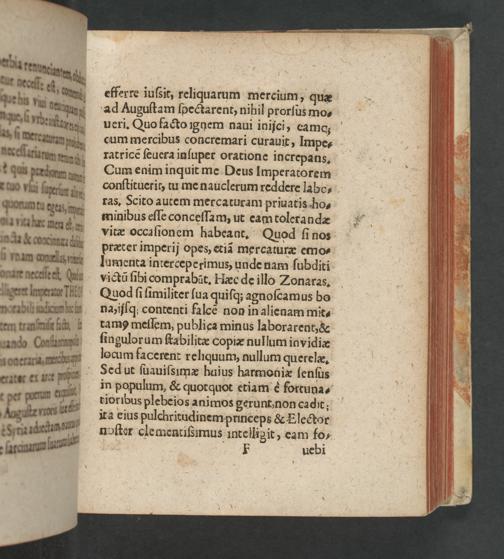 efferre iussit, reliquarum mercium, quæ
ad Augustam spectarent, nihil prorsus mo⸗
ueri. Quo facto ignem naui inijci, eamq;
cum mercibus concremari curauit, Impe⸗
ratricē seuera insuper oratione increpans.
Cum enim inquit me Deus Imperatorem
constituerit, tu me nauclerum reddere labo⸗
ras. Scito autem mercaturam priuatis ho⸗
minibus esse concessam, ut eam tolerandæ
vitæ occasionem habeant. Quod si nos
præter imperij opes, etiā mercaturæ emo⸗
lumenta interceperimus, unde nam subditi
victū sibi comprabūt. Hæc de illo Zonaras.
Quod si similiter sua quisq; agnoscamus bo
na, ijsq; contenti falcē non in alienam mit⸗
tamꝰ messem, publica minus laborarent, &
singulorum stabilitæ copiæ nullum inuidiæ
locum facerent reliquum, nullum querelæ.
Sed ut suauissimæ huius harmoniæ sensus
in populum, & quotquot etiam è fortuna⸗
tioribus plebeios animos gerunt, non cadit;
ita eius pulchritudinem princeps & Elector
noster clementissimus intelligit, eam fo⸗
F uebi